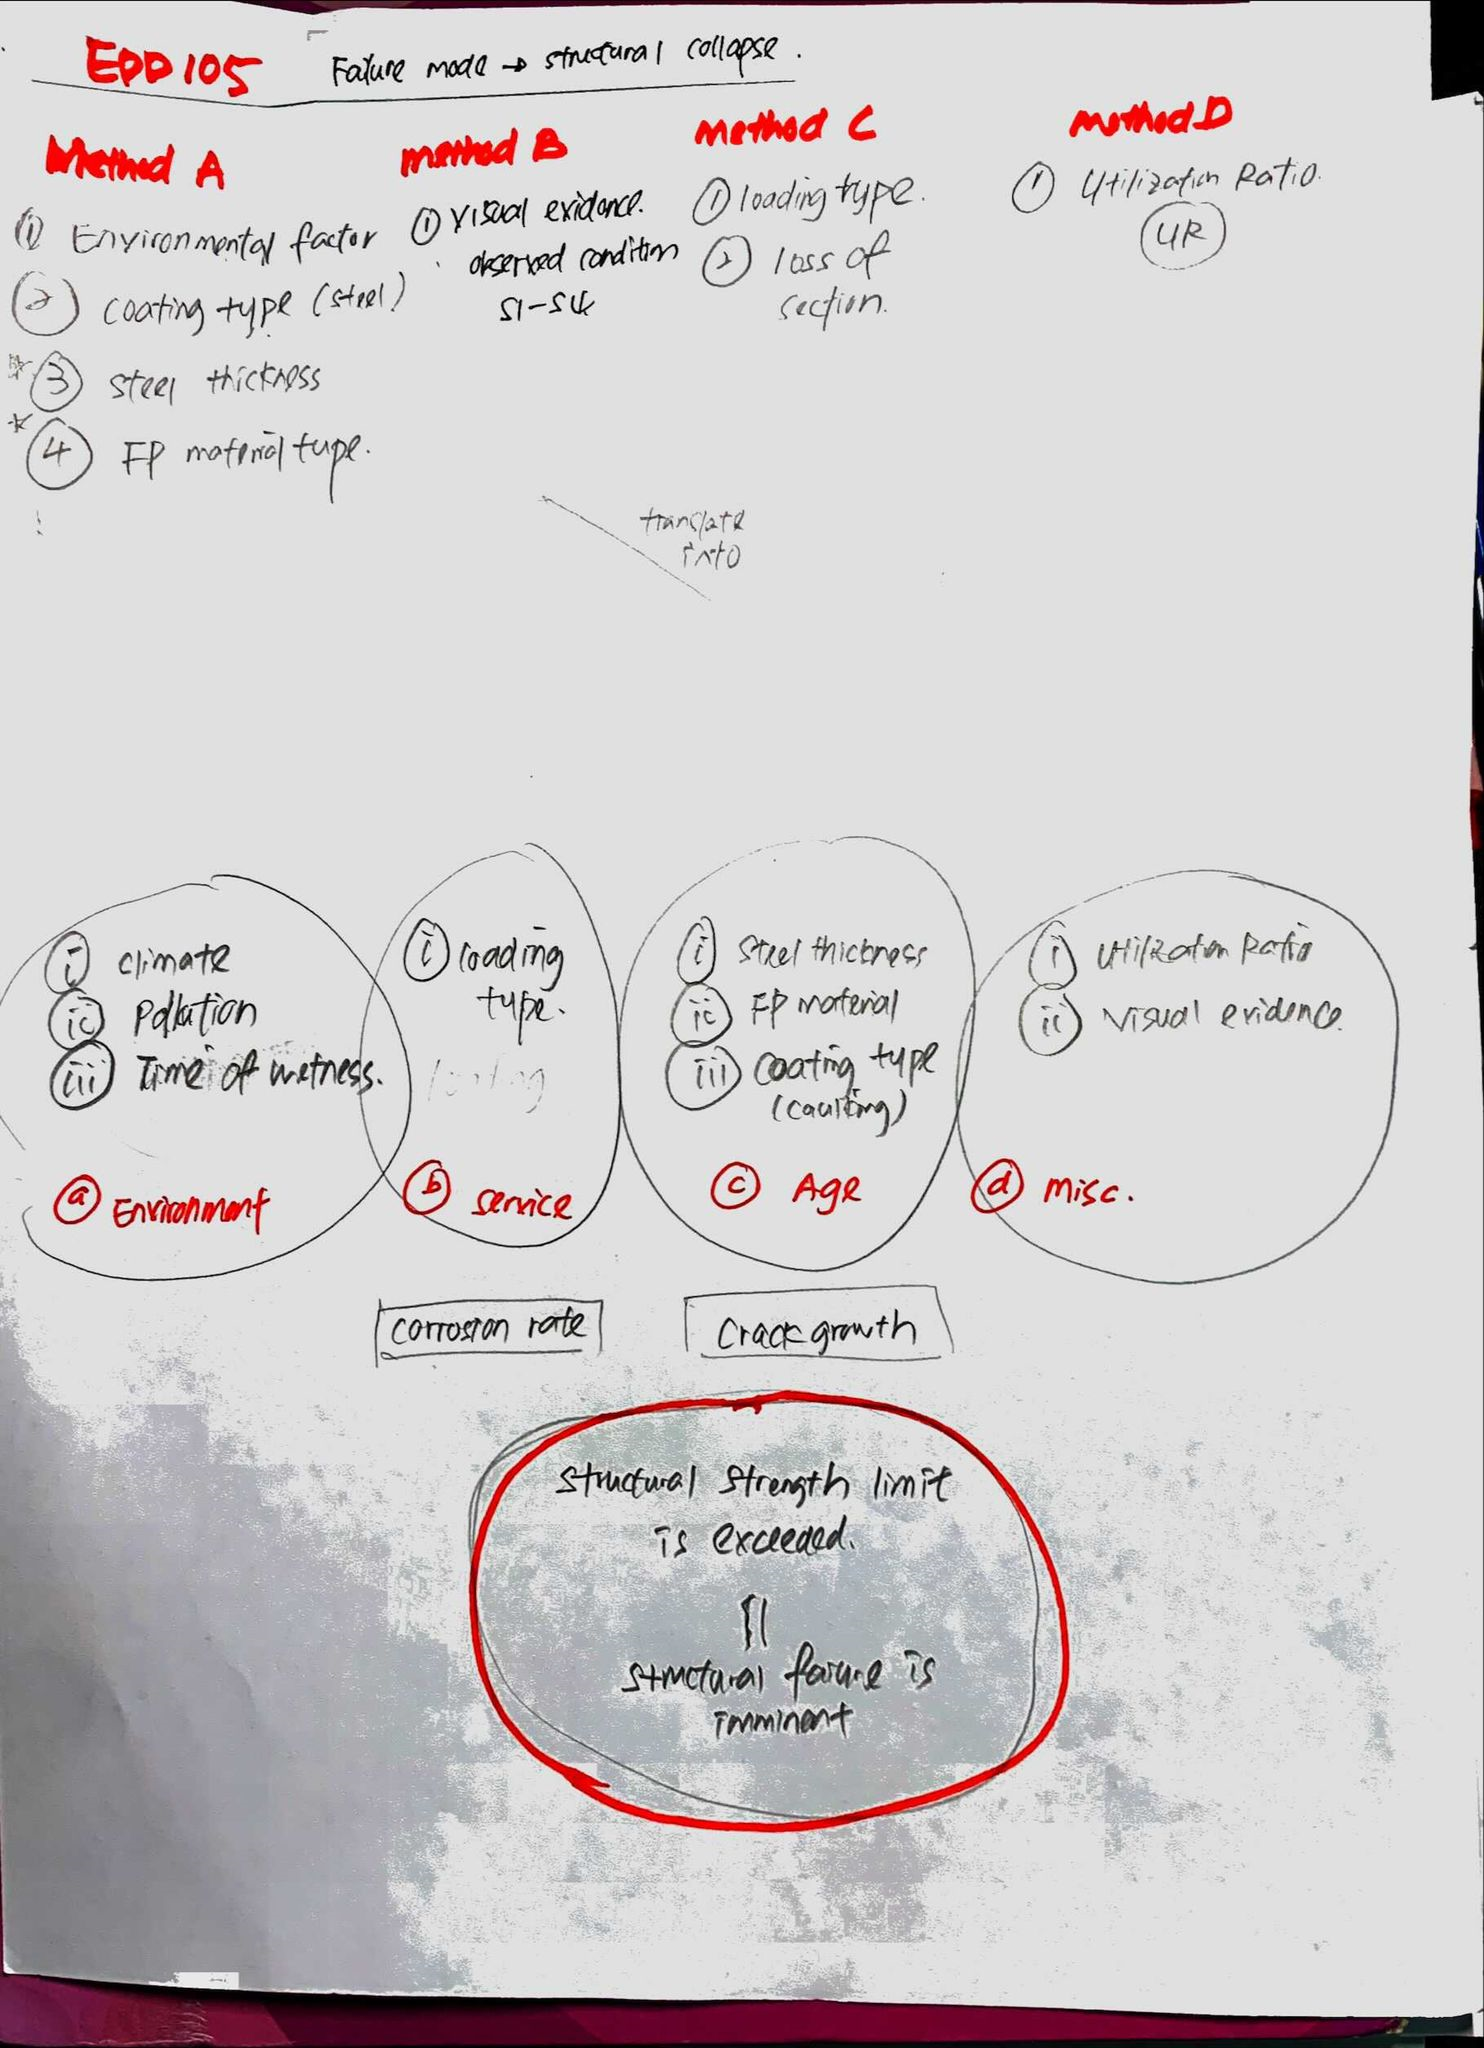 EDD105 Failure mode → structural collapse.
Method A
① Environmental factor
② coating type (steel)
③ steel thickness
④ FP material type.
method B
① visual evidence.
observed condition
S1-S4
method C
① loading type.
② loss of
section.
method D
① Utilization Ratio.
UR
translate
into
ⓘ climate
ⓘⓘ Pollution
ⓘⓘⓘ Time of wetness.
ⓐ Environment
ⓘ loading
type.
loading
ⓑ service
ⓘ steel thickness
ⓘⓘ FP material
ⓘⓘⓘ coating type
(caulking)
ⓒ Age
ⓘ Utilization Ratio
ⓘⓘ visual evidence.
ⓓ misc.
corrosion rate
crack growth
structural strength limit
is exceeded.
structural failure is
imminent